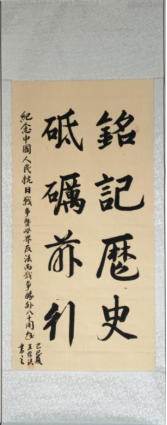 銘記歷史
砥礪前行
紀念中國人民抗日戰爭暨世界反法西斯戰爭勝利八十周年
乙巳夏